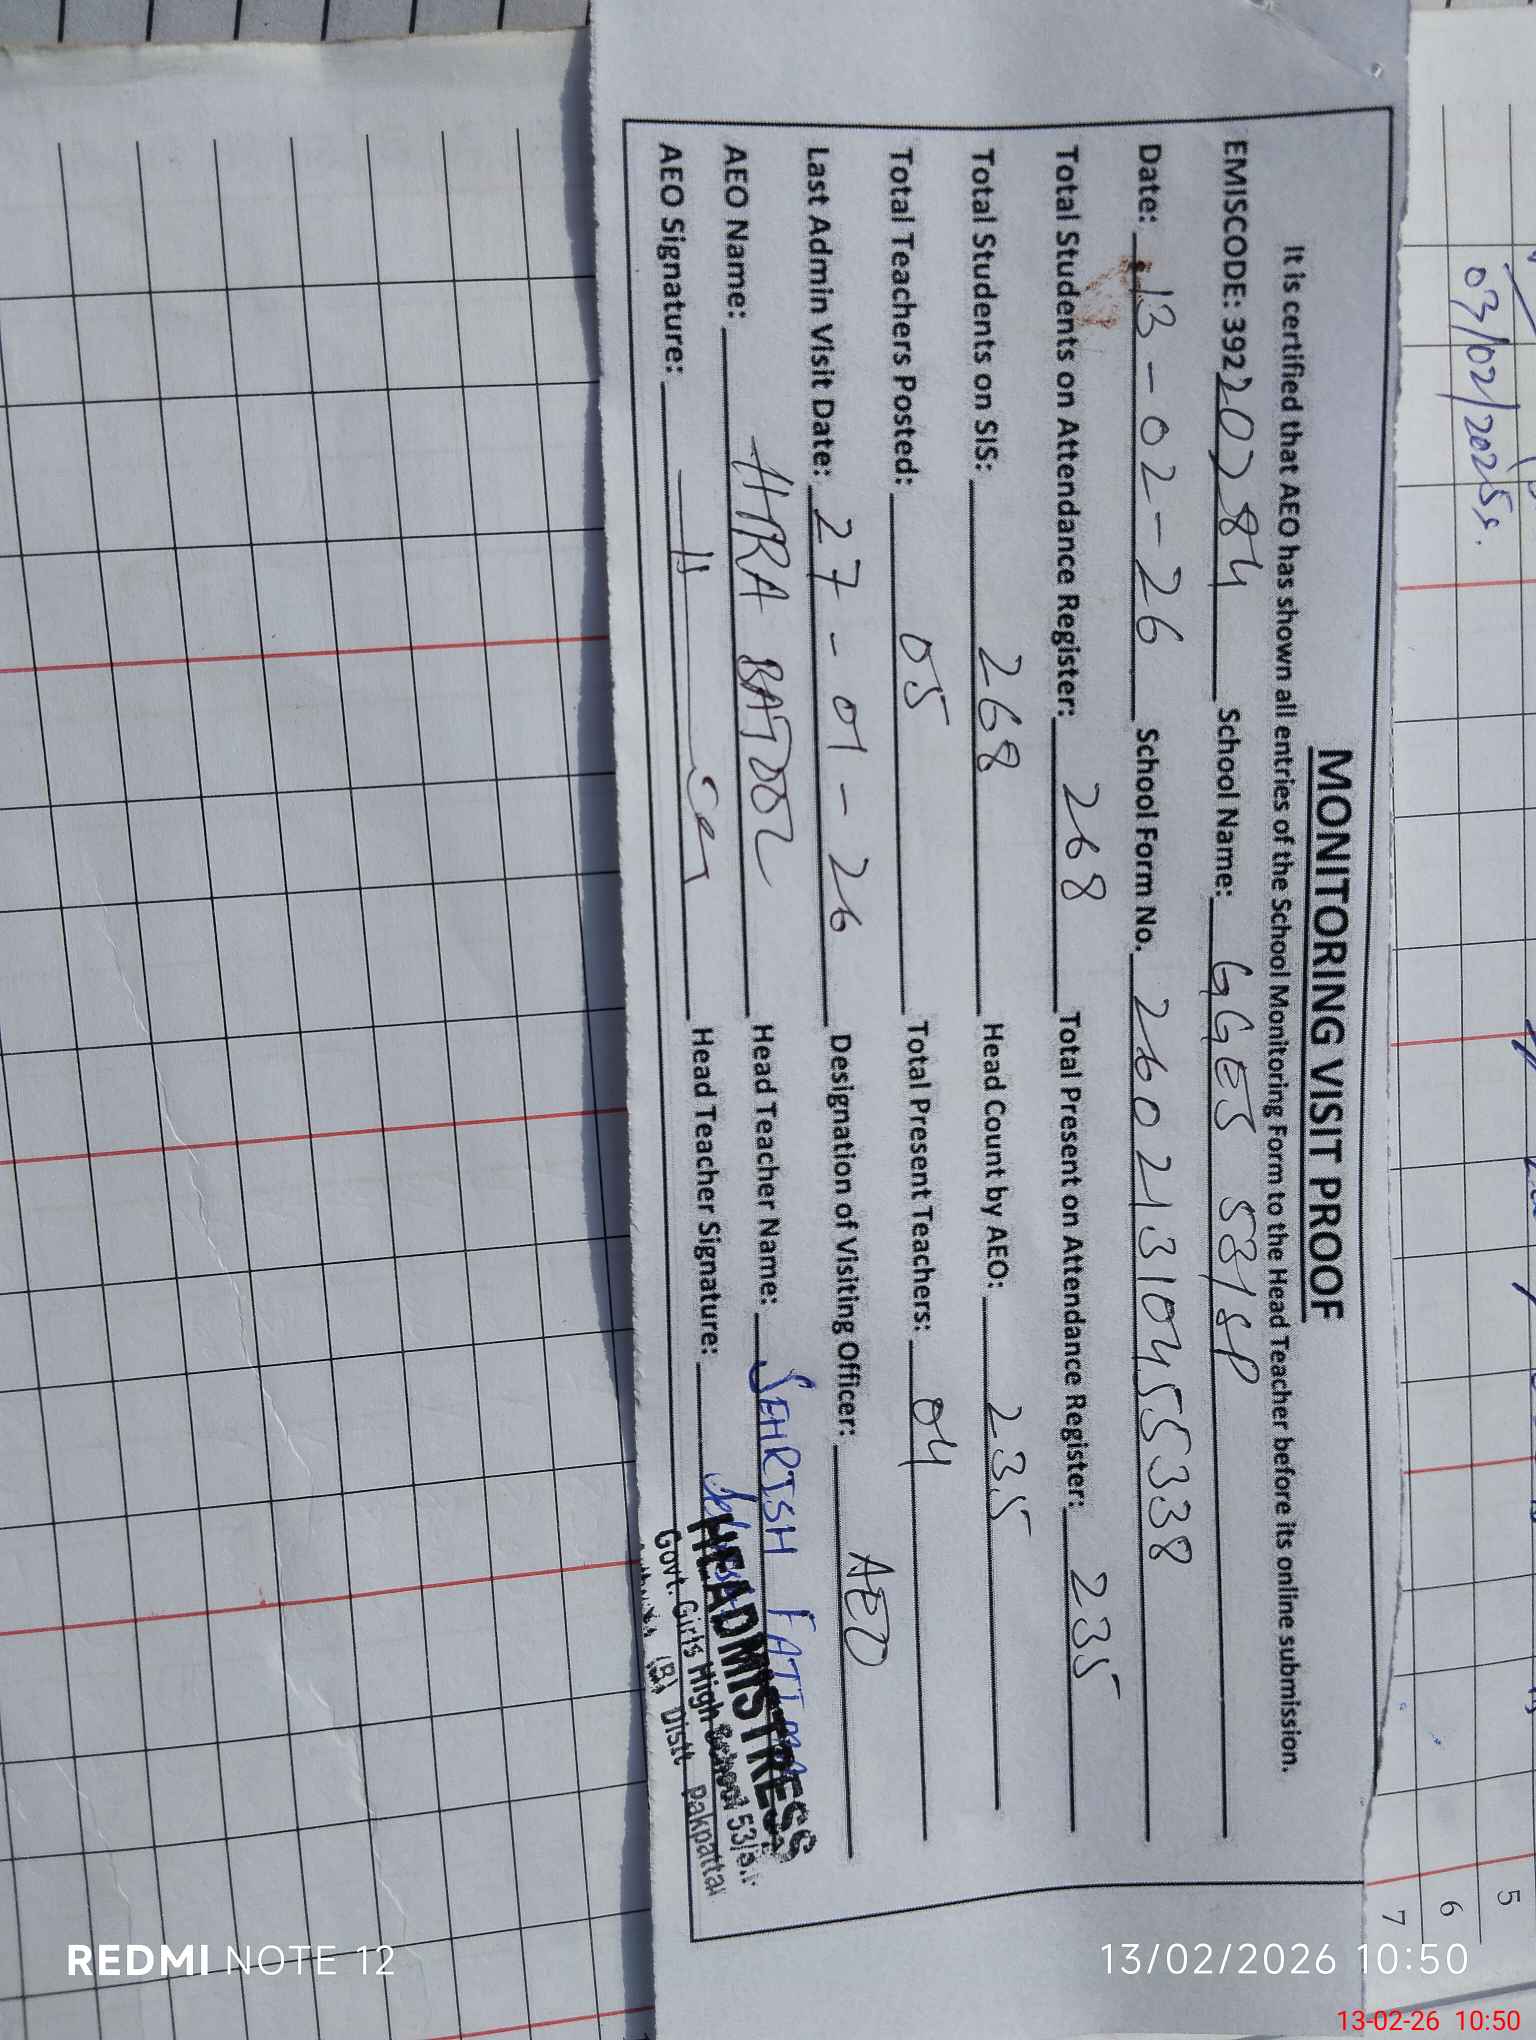 MONITORING VISIT PROOF
It is certified that AEO has shown all entries of the School Monitoring Form to the Head Teacher before its online submission.
EMISCODE: 39220284 School Name: GGES 53/SP
Date: 13-02-26 School Form No. 260213104555338
Total Students on Attendance Register: 268 Total Present on Attendance Register: 235
Total Students on SIS: 268 Head Count by AEO: 235
Total Teachers Posted: 05 Total Present Teachers: 04
Last Admin Visit Date: 27-01-26 Designation of Visiting Officer: AEO
AEO Name: HIRA BATOOL Head Teacher Name: SEHRISH FATIMA
AEO Signature: Head Teacher Signature:
HEADMISTRESS
Govt. Girls High School 53/
(B) Distt Pakpattan
03/02/2025
5
6
7
REDMI NOTE 12
13/02/2026 10:50
13-02-26 10:50